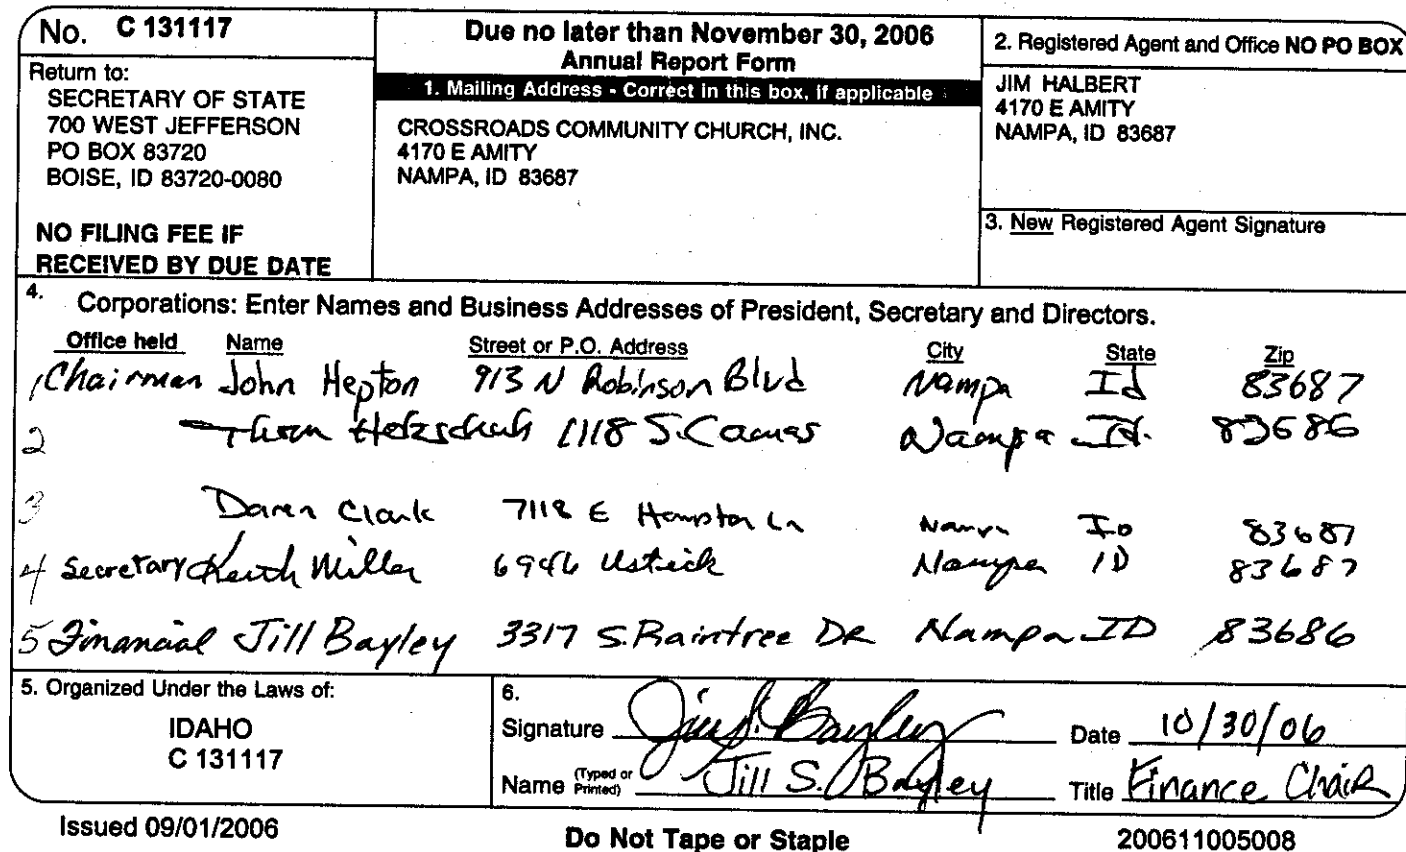 No. C 131117
Return to:
SECRETARY OF STATE
700 WEST JEFFERSON
PO BOX 83720
BOISE, ID 83720-0080
NO FILING FEE IF
RECEIVED BY DUE DATE
Due no later than November 30, 2006
Annual Report Form
1. Mailing Address - Correct in this box, if applicable
CROSSROADS COMMUNITY CHURCH, INC.
4170 E AMITY
NAMPA, ID 83687
2. Registered Agent and Office NO PO BOX
JIM HALBERT
4170 E AMITY
NAMPA, ID 83687
3. New Registered Agent Signature
4. Corporations: Enter Names and Business Addresses of President, Secretary and Directors.
Office held Name Street or P.O. Address City State Zip
1 Chairman John Hepton 913 N Robinson Blvd Nampa Id 83687
2 1118 S. Camas Nampa Id. 83686
3 Daren Clark 7118 E Hampton Ln Nampa ID 83687
4 Secretary Keith Miller 6946 Ustick Nampa ID 83687
5 Financial Jill Bayley 3317 S. Raintree DR Nampa ID 83686
5. Organized Under the Laws of:
IDAHO
C 131117
6.
Signature Jill S. Bayley Date 10/30/06
Name (Typed or Printed) Jill S. Bayley Title Finance Chair
Issued 09/01/2006
Do Not Tape or Staple
200611005008